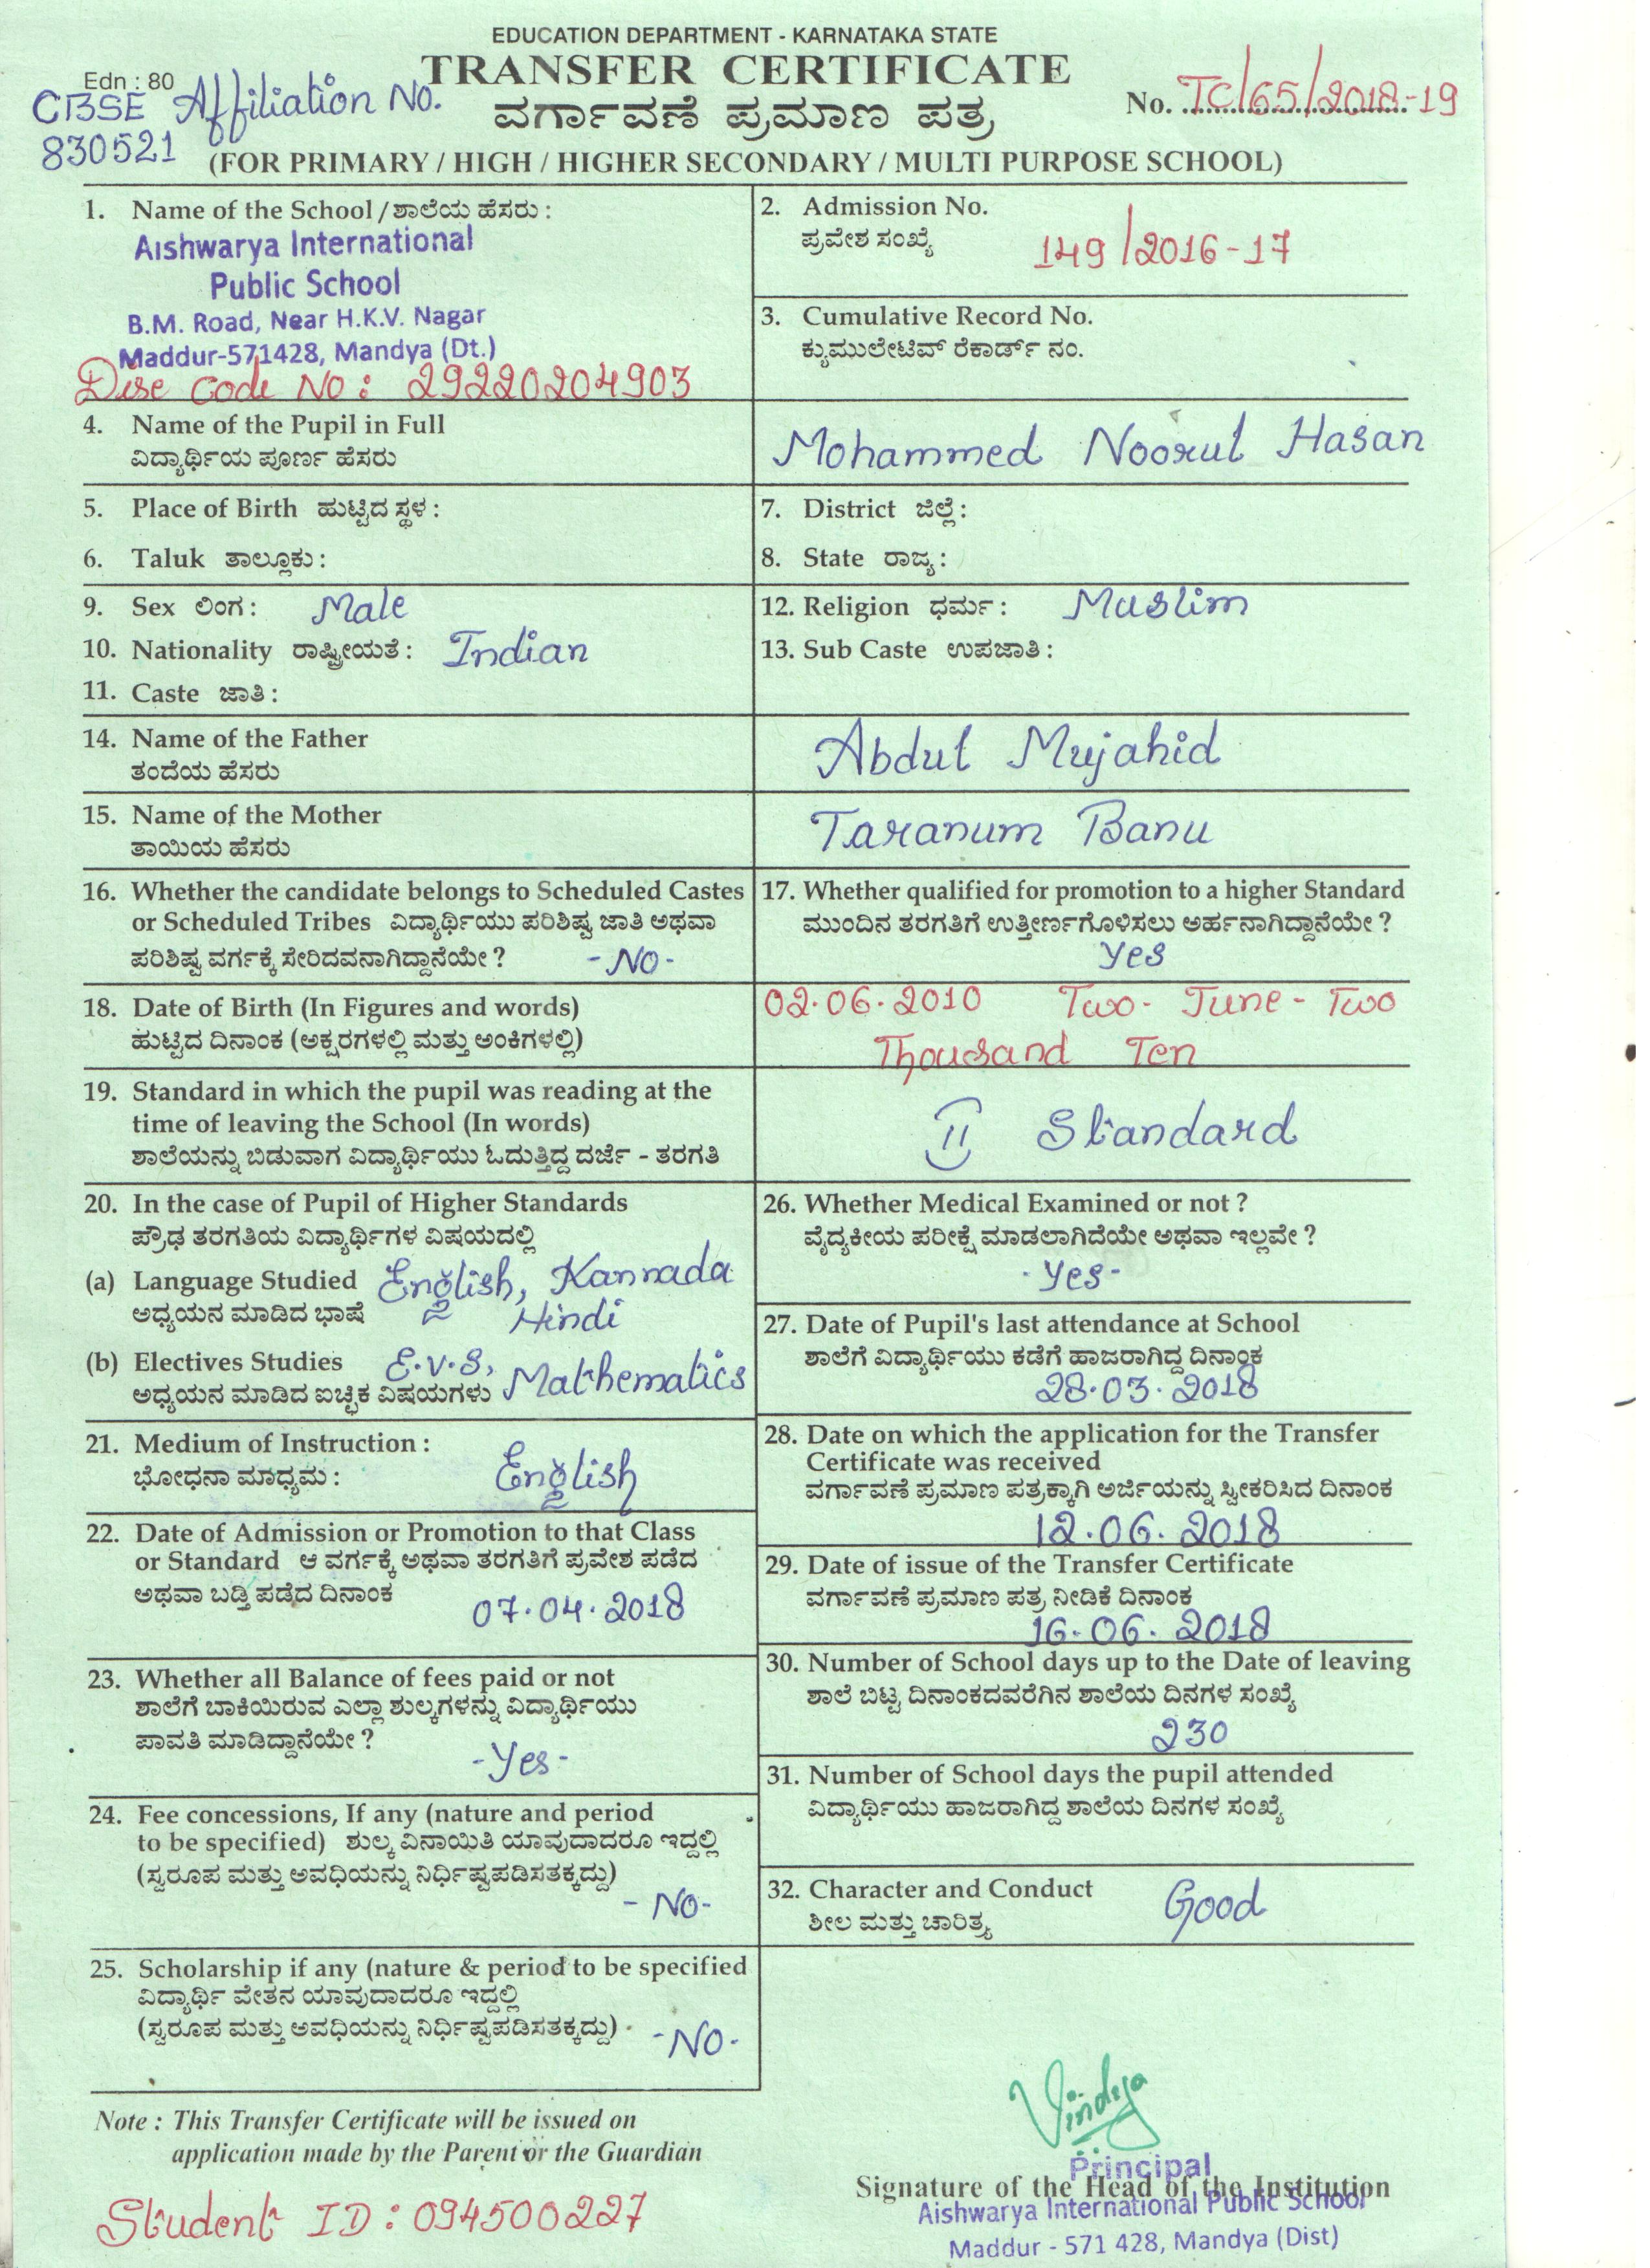 EDUCATION DEPARTMENT - KARNATAKA STATE
Edn : 80
TRANSFER CERTIFICATE
CBSE Affiliation No.
830521
ವರ್ಗಾವಣೆ ಪ್ರಮಾಣ ಪತ್ರ
No. TC/65/2018-19
(FOR PRIMARY / HIGH / HIGHER SECONDARY / MULTI PURPOSE SCHOOL)
1. Name of the School / ಶಾಲೆಯ ಹೆಸರು :
Aishwarya International
Public School
B.M. Road, Near H.K.V. Nagar
Maddur-571428, Mandya (Dt.)
Dise Code No : 29220204903
2. Admission No.
ಪ್ರವೇಶ ಸಂಖ್ಯೆ 149/2016-17
3. Cumulative Record No.
ಕ್ಯುಮುಲೇಟಿವ್ ರೆಕಾರ್ಡ್ ನಂ.
4. Name of the Pupil in Full
ವಿದ್ಯಾರ್ಥಿಯ ಪೂರ್ಣ ಹೆಸರು
Mohammed Noorul Hasan
5. Place of Birth ಹುಟ್ಟಿದ ಸ್ಥಳ :
7. District ಜಿಲ್ಲೆ :
6. Taluk ತಾಲ್ಲೂಕು :
8. State ರಾಜ್ಯ :
9. Sex ಲಿಂಗ : Male
12. Religion ಧರ್ಮ : Muslim
10. Nationality ರಾಷ್ಟ್ರೀಯತೆ : Indian
13. Sub Caste ಉಪಜಾತಿ :
11. Caste ಜಾತಿ :
14. Name of the Father
ತಂದೆಯ ಹೆಸರು
Abdul Mujahid
15. Name of the Mother
ತಾಯಿಯ ಹೆಸರು
Taranum Banu
16. Whether the candidate belongs to Scheduled Castes
or Scheduled Tribes ವಿದ್ಯಾರ್ಥಿಯು ಪರಿಶಿಷ್ಟ ಜಾತಿ ಅಥವಾ
ಪರಿಶಿಷ್ಟ ವರ್ಗಕ್ಕೆ ಸೇರಿದವನಾಗಿದ್ದಾನೆಯೇ ? - No -
17. Whether qualified for promotion to a higher Standard
ಮುಂದಿನ ತರಗತಿಗೆ ಉತ್ತೀರ್ಣಗೊಳಿಸಲು ಅರ್ಹನಾಗಿದ್ದಾನೆಯೇ ?
Yes
18. Date of Birth (In Figures and words)
ಹುಟ್ಟಿದ ದಿನಾಂಕ (ಅಕ್ಷರಗಳಲ್ಲಿ ಮತ್ತು ಅಂಕಿಗಳಲ್ಲಿ)
02.06.2010 Two - June - Two
Thousand Ten
19. Standard in which the pupil was reading at the
time of leaving the School (In words)
ಶಾಲೆಯನ್ನು ಬಿಡುವಾಗ ವಿದ್ಯಾರ್ಥಿಯು ಓದುತ್ತಿದ್ದ ದರ್ಜೆ - ತರಗತಿ
II Standard
20. In the case of Pupil of Higher Standards
ಪ್ರೌಢ ತರಗತಿಯ ವಿದ್ಯಾರ್ಥಿಗಳ ವಿಷಯದಲ್ಲಿ
(a) Language Studied English, Kannada
ಅಧ್ಯಯನ ಮಾಡಿದ ಭಾಷೆ Hindi
(b) Electives Studies E.V.S,
ಅಧ್ಯಯನ ಮಾಡಿದ ಐಚ್ಛಿಕ ವಿಷಯಗಳು Mathematics
21. Medium of Instruction :
ಭೋಧನಾ ಮಾಧ್ಯಮ : English
22. Date of Admission or Promotion to that Class
or Standard ಆ ವರ್ಗಕ್ಕೆ ಅಥವಾ ತರಗತಿಗೆ ಪ್ರವೇಶ ಪಡೆದ
ಅಥವಾ ಬಡ್ತಿ ಪಡೆದ ದಿನಾಂಕ 07.04.2018
23. Whether all Balance of fees paid or not
ಶಾಲೆಗೆ ಬಾಕಿಯಿರುವ ಎಲ್ಲಾ ಶುಲ್ಕಗಳನ್ನು ವಿದ್ಯಾರ್ಥಿಯು
ಪಾವತಿ ಮಾಡಿದ್ದಾನೆಯೇ ?
- Yes -
24. Fee concessions, If any (nature and period
to be specified) ಶುಲ್ಕ ವಿನಾಯಿತಿ ಯಾವುದಾದರೂ ಇದ್ದಲ್ಲಿ
(ಸ್ವರೂಪ ಮತ್ತು ಅವಧಿಯನ್ನು ನಿರ್ಧಿಷ್ಟಪಡಿಸತಕ್ಕದ್ದು)
- No -
25. Scholarship if any (nature & period to be specified
ವಿದ್ಯಾರ್ಥಿ ವೇತನ ಯಾವುದಾದರೂ ಇದ್ದಲ್ಲಿ
(ಸ್ವರೂಪ ಮತ್ತು ಅವಧಿಯನ್ನು ನಿರ್ಧಿಷ್ಟಪಡಿಸತಕ್ಕದ್ದು) - No -
26. Whether Medical Examined or not ?
ವೈದ್ಯಕೀಯ ಪರೀಕ್ಷೆ ಮಾಡಲಾಗಿದೆಯೇ ಅಥವಾ ಇಲ್ಲವೇ ?
- Yes -
27. Date of Pupil's last attendance at School
ಶಾಲೆಗೆ ವಿದ್ಯಾರ್ಥಿಯು ಕಡೆಗೆ ಹಾಜರಾಗಿದ್ದ ದಿನಾಂಕ
28.03.2018
28. Date on which the application for the Transfer
Certificate was received
ವರ್ಗಾವಣೆ ಪ್ರಮಾಣ ಪತ್ರಕ್ಕಾಗಿ ಅರ್ಜಿಯನ್ನು ಸ್ವೀಕರಿಸಿದ ದಿನಾಂಕ
12.06.2018
29. Date of issue of the Transfer Certificate
ವರ್ಗಾವಣೆ ಪ್ರಮಾಣ ಪತ್ರ ನೀಡಿಕೆ ದಿನಾಂಕ
16.06.2018
30. Number of School days up to the Date of leaving
ಶಾಲೆ ಬಿಟ್ಟ ದಿನಾಂಕದವರೆಗಿನ ಶಾಲೆಯ ದಿನಗಳ ಸಂಖ್ಯೆ
230
31. Number of School days the pupil attended
ವಿದ್ಯಾರ್ಥಿಯು ಹಾಜರಾಗಿದ್ದ ಶಾಲೆಯ ದಿನಗಳ ಸಂಖ್ಯೆ
32. Character and Conduct Good
ಶೀಲ ಮತ್ತು ಚಾರಿತ್ರ್ಯ
Note : This Transfer Certificate will be issued on
application made by the Parent or the Guardian
Student ID : 094500227
Vindya
Principal
Signature of the Head of the Institution
Aishwarya International Public School
Maddur - 571 428, Mandya (Dist)